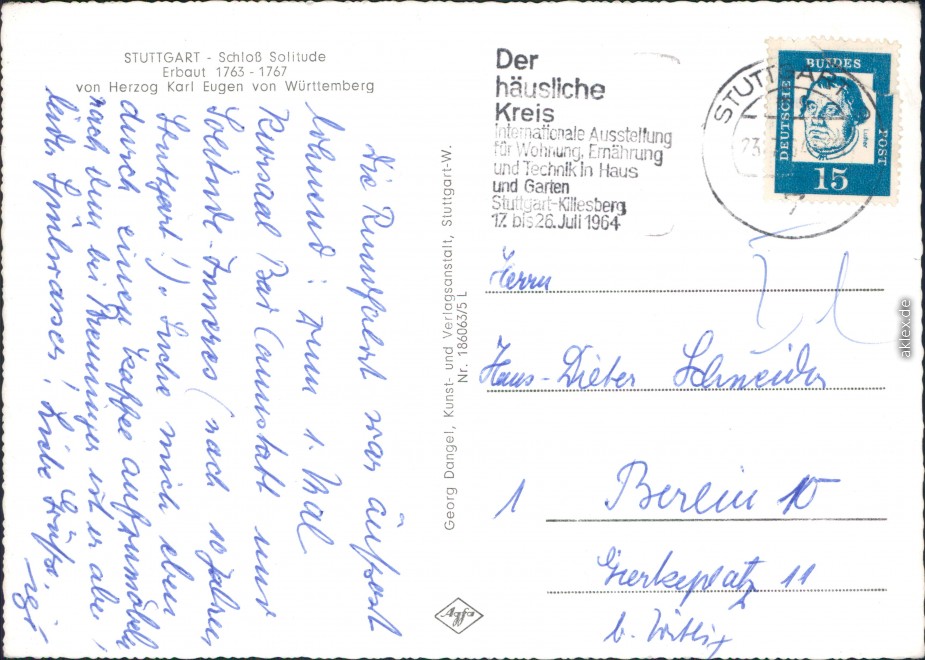 STUTTGART - Schloß Solitude
Erbaut 1763 - 1767
von Herzog Karl Eugen von Württemberg
Die Rundfahrt war äußerst
lohnend: zum 1. Mal
Kursaal Bad Cannstatt und
Solitude-Inneres (nach 10 Jahren
Stuttgart!). Suche mich eben
durch einen Kaffee aufzumöbeln,
nach dem bei Breuninger ist er aber
leider Spülwasser! Liebe Grüße.
Georg Dangel, Kunst- und Verlagsanstalt, Stuttgart-W.
Nr. 186063/5 L
Agfa
Der
häusliche
Kreis
Internationale Ausstellung
für Wohnung, Ernährung
und Technik in Haus
und Garten
Stuttgart-Killesberg
17. bis 26. Juli 1964
STUTTGART
23.
DEUTSCHE
BUNDES
POST
Luther
15
Herrn
Hans-Dieter Schneider
1 Berlin 10
Gierkeplatz 11
b. Wittig
aklex.de